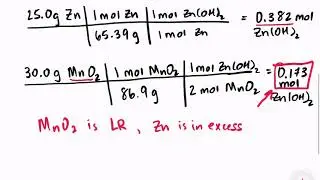 25.0g Zn | 1 mol Zn | 1 mol Zn(OH)2 = 0.382 mol
65.39 g | 1 mol Zn Zn(OH)2
30.0g MnO2 | 1 mol MnO2 | 1 mol Zn(OH)2 = 0.173
86.9 g | 2 mol MnO2 mol
Zn(OH)2
MnO2 is LR, Zn is in excess